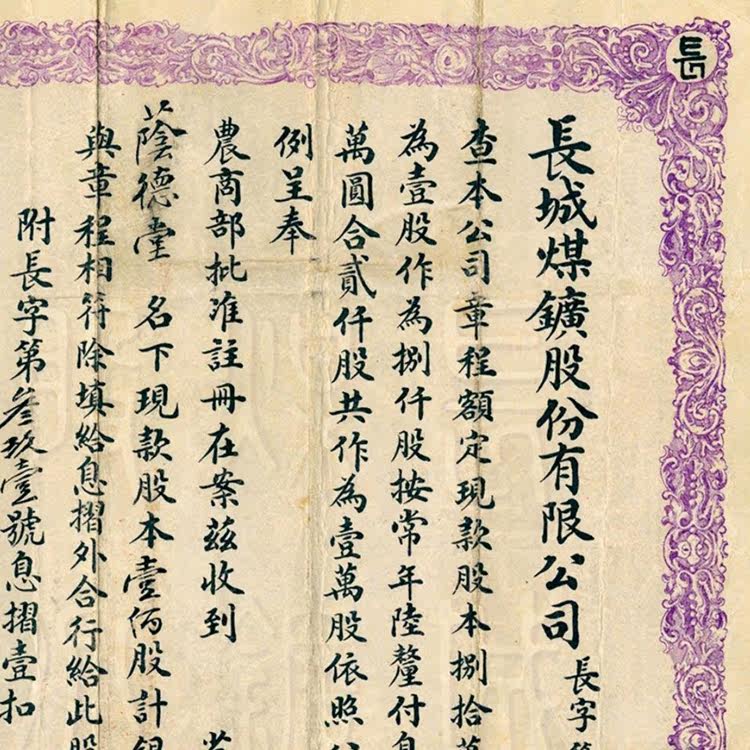 長
長城煤鑛股份有限公司
長字
查本公司章程額定現款股本捌拾萬
為壹股作為捌仟股按常年陸釐付息
萬圓合貳仟股共作為壹萬股依照
例呈奉
農商部批准註冊在案茲收到
蔭德堂 名下現款股本壹佰股計
與章程相符除填給息摺外合行給此股
附長字第叁玖壹號息摺壹扣